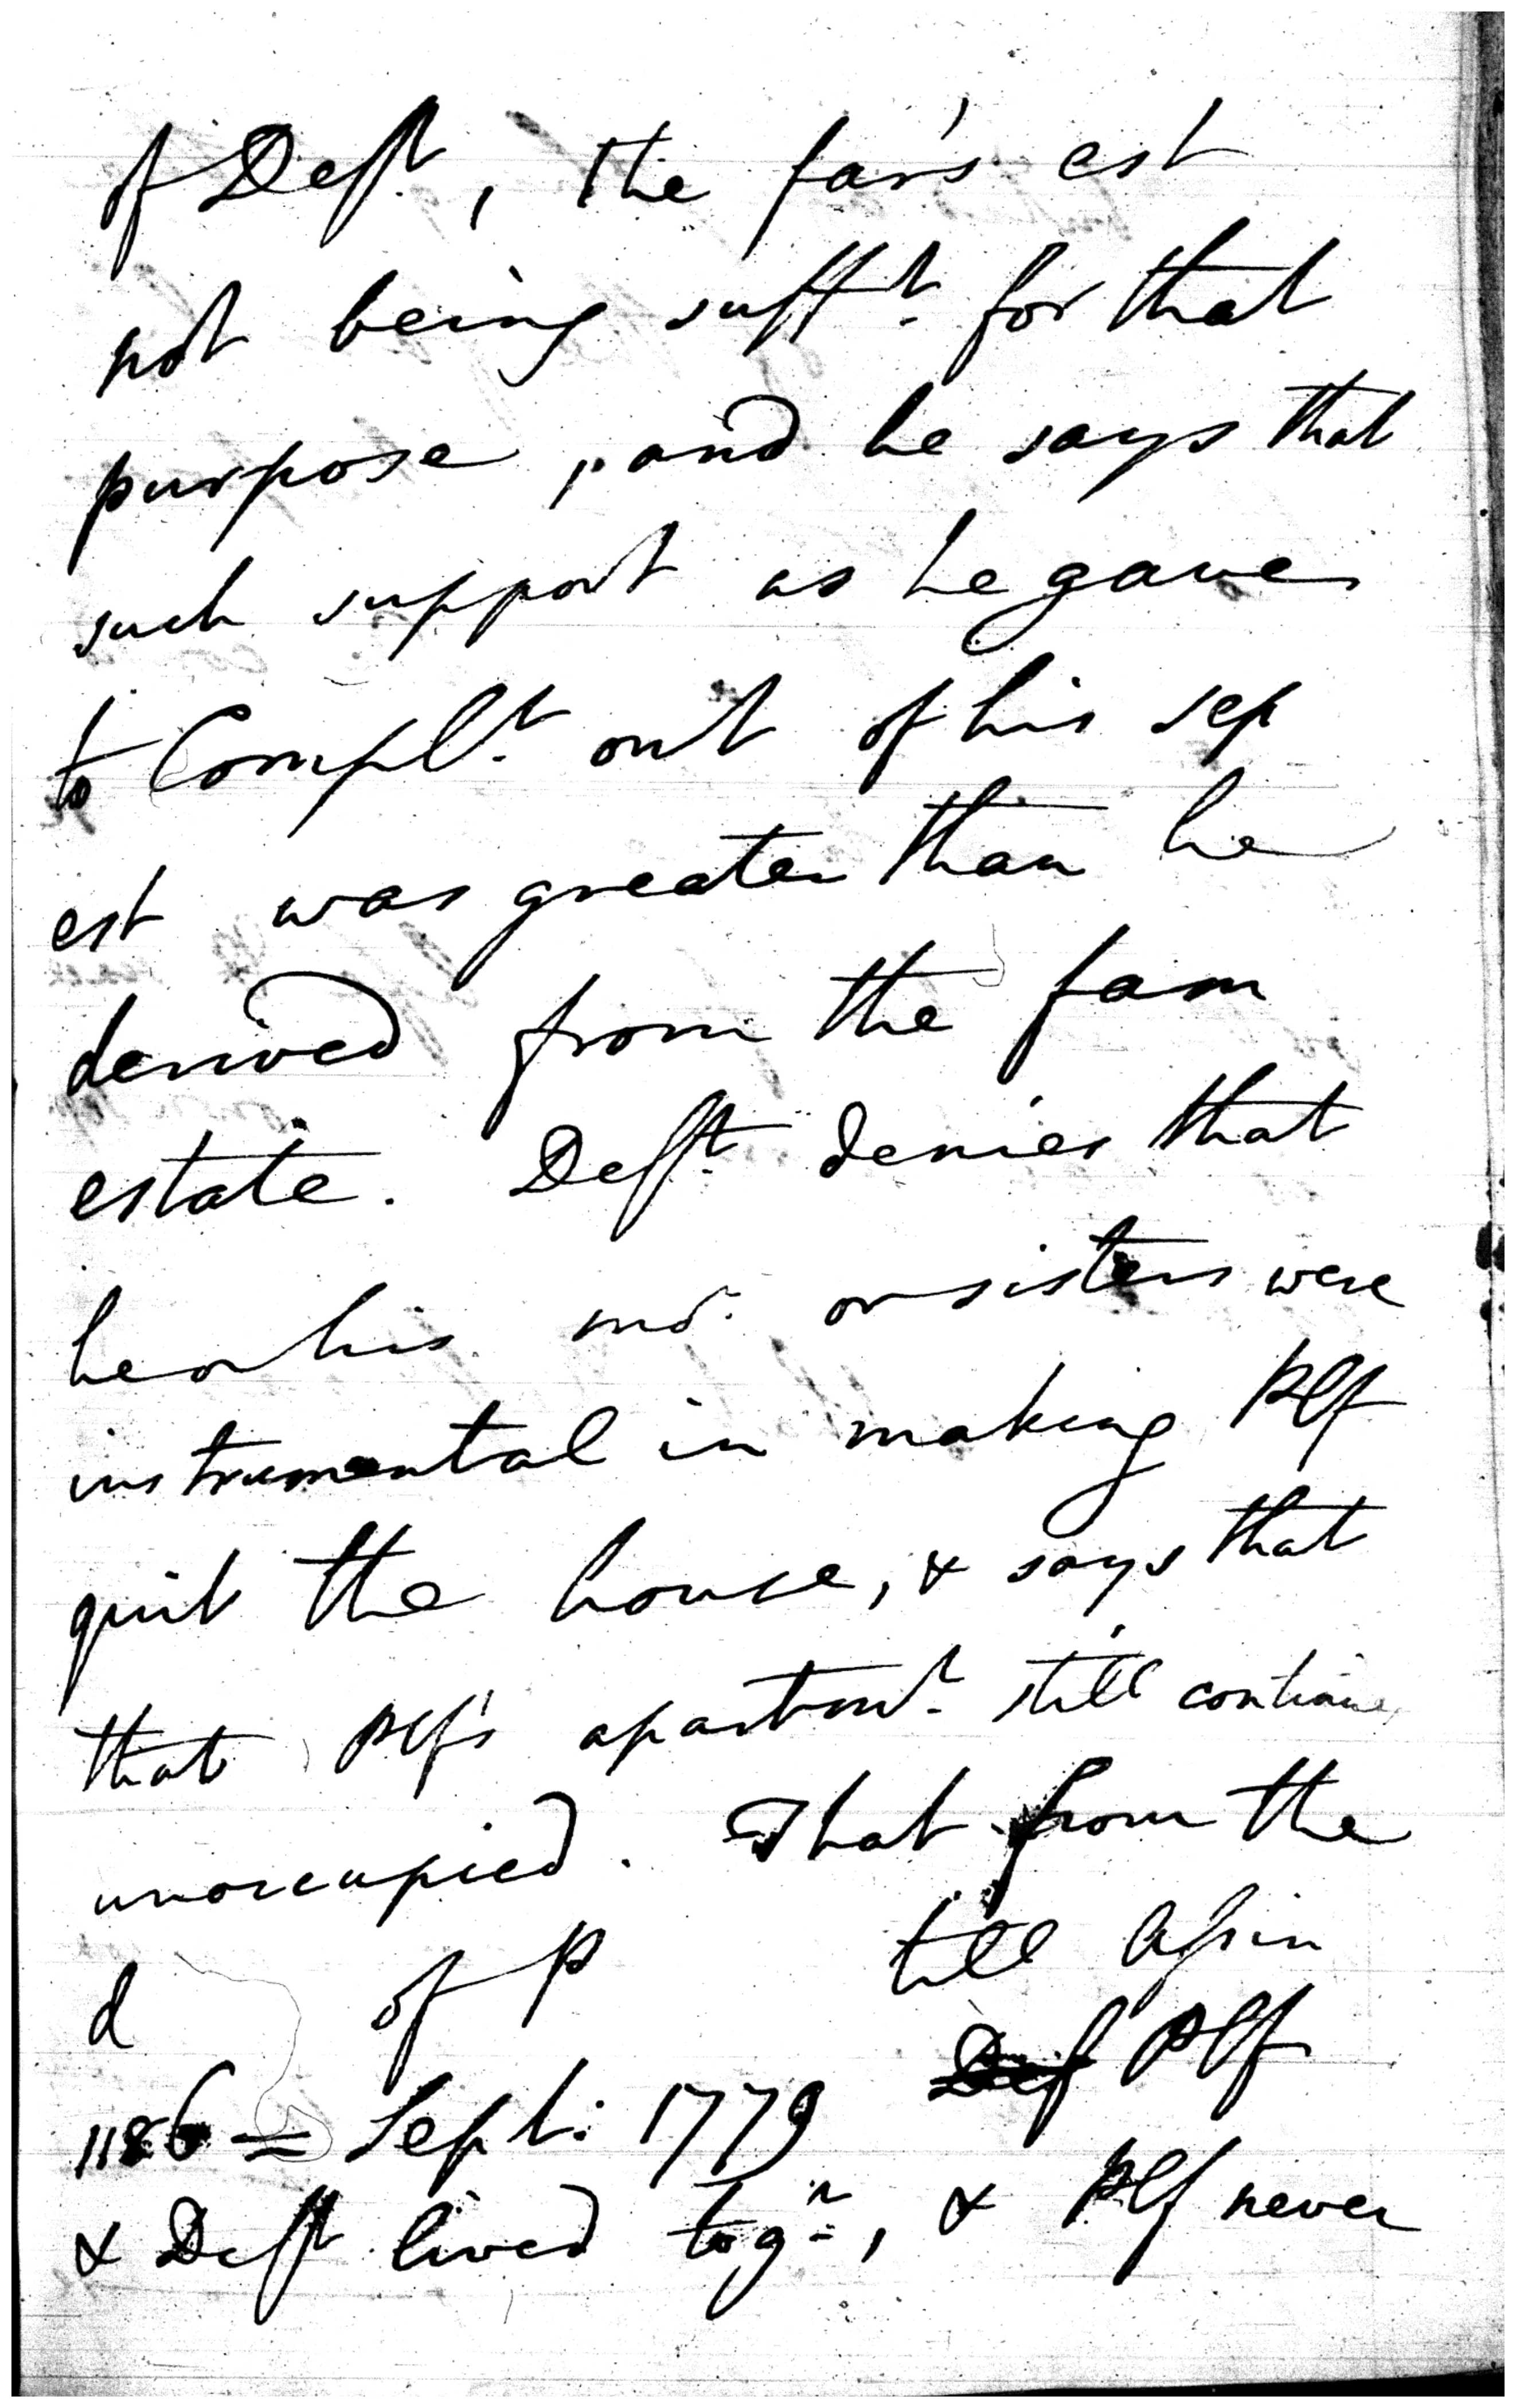 of Deft, the fam's est
not being sufft. for that
purpose, and he says that
such support as he gave
to Complt. out of his sep
est was greater than he
derived from the fam
estate. Deft. denies that
he or his mo. or sisters were
instrumental in making Plf
quit the house, & says that
that Plf's apartmt. still continues
unoccupied. That from the
d of P till Assin
1186 = Sept: 1779 Def Plf
& Deft lived togr., & Plf never